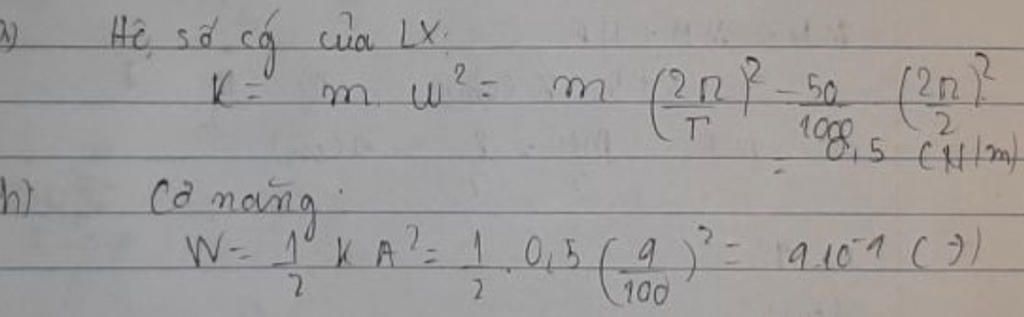 a) Hệ số cứ của LX:
K = m ω² = m (2π/T)² = 50/1000 (2π/2)²
= 0,5 (N/m)
b) Cơ năng:
W = 1/2 K A² = 1/2 . 0,5 (9/100)² = 9.10⁻¹ (J)